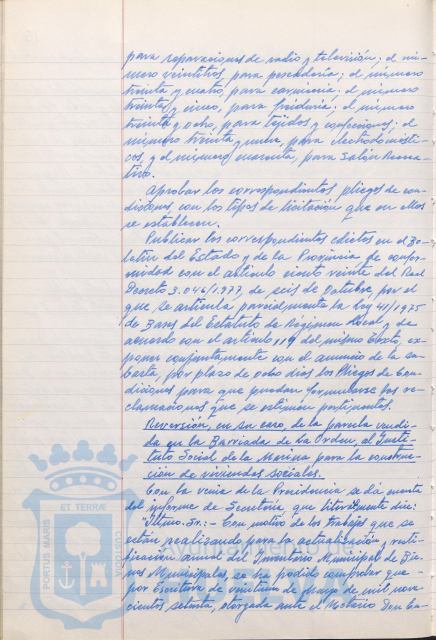 para reparaciones de radio y televisión; el nú-
mero veintitres, para pescadería; el número
treinta y cuatro, para carnicería; el número
treinta y cinco, para freiduría; el número
treinta y ocho, para tejidos y confecciones; el
número treinta y nueve, para electrodomésti-
cos, y el número cuarenta, para Salón Recrea-
tivo.
Aprobar los correspondientes pliegos de con-
diciones, con los tipos de licitación que en ellos
se establecen.
Publicar los correspondientes edictos en el Bo-
letín del Estado y de la Provincia, de confor-
midad con el artículo ciento veinte del Real
Decreto 3.046/1.977, de seis de Octubre, por el
que se articula parcialmente la Ley 41/1975
de Bases del Estatuto de Régimen Local y de
acuerdo con el artículo 119 del mismo texto, ex-
poner conjuntamente con el anuncio de la su-
basta, por plazo de ocho días los Pliegos de Con-
diciones para que puedan formularse las re-
clamaciones que se estimen pertinentes.
Reversión, en su caso, de la parcela vendi-
da en la Barriada de La Orden, al Insti-
tuto Social de la Marina para la construc-
ción de viviendas sociales.
Con la venia de la Presidencia se dá cuenta
del informe de Secretaría, que literalmente dice:
Iltmo. Sr.: - Con motivo de los trabajos que se
están realizando para la actualización y recti-
ficación anual del Inventario Municipal de Bie-
nes Municipales, se ha podido comprobar que
por Escritura de veintiuno de mayo de mil nove-
cientos setenta, otorgada ante el Notario Don
PORTUS MARIS
ET TERRAE
CUSTODIA
Ayuntamiento de